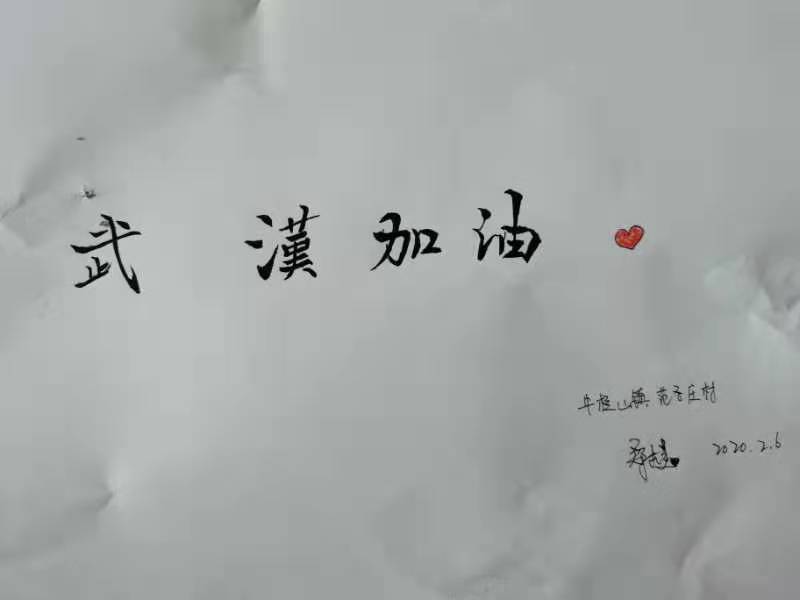 武漢加油
山镇范各庄村
2020.2.6